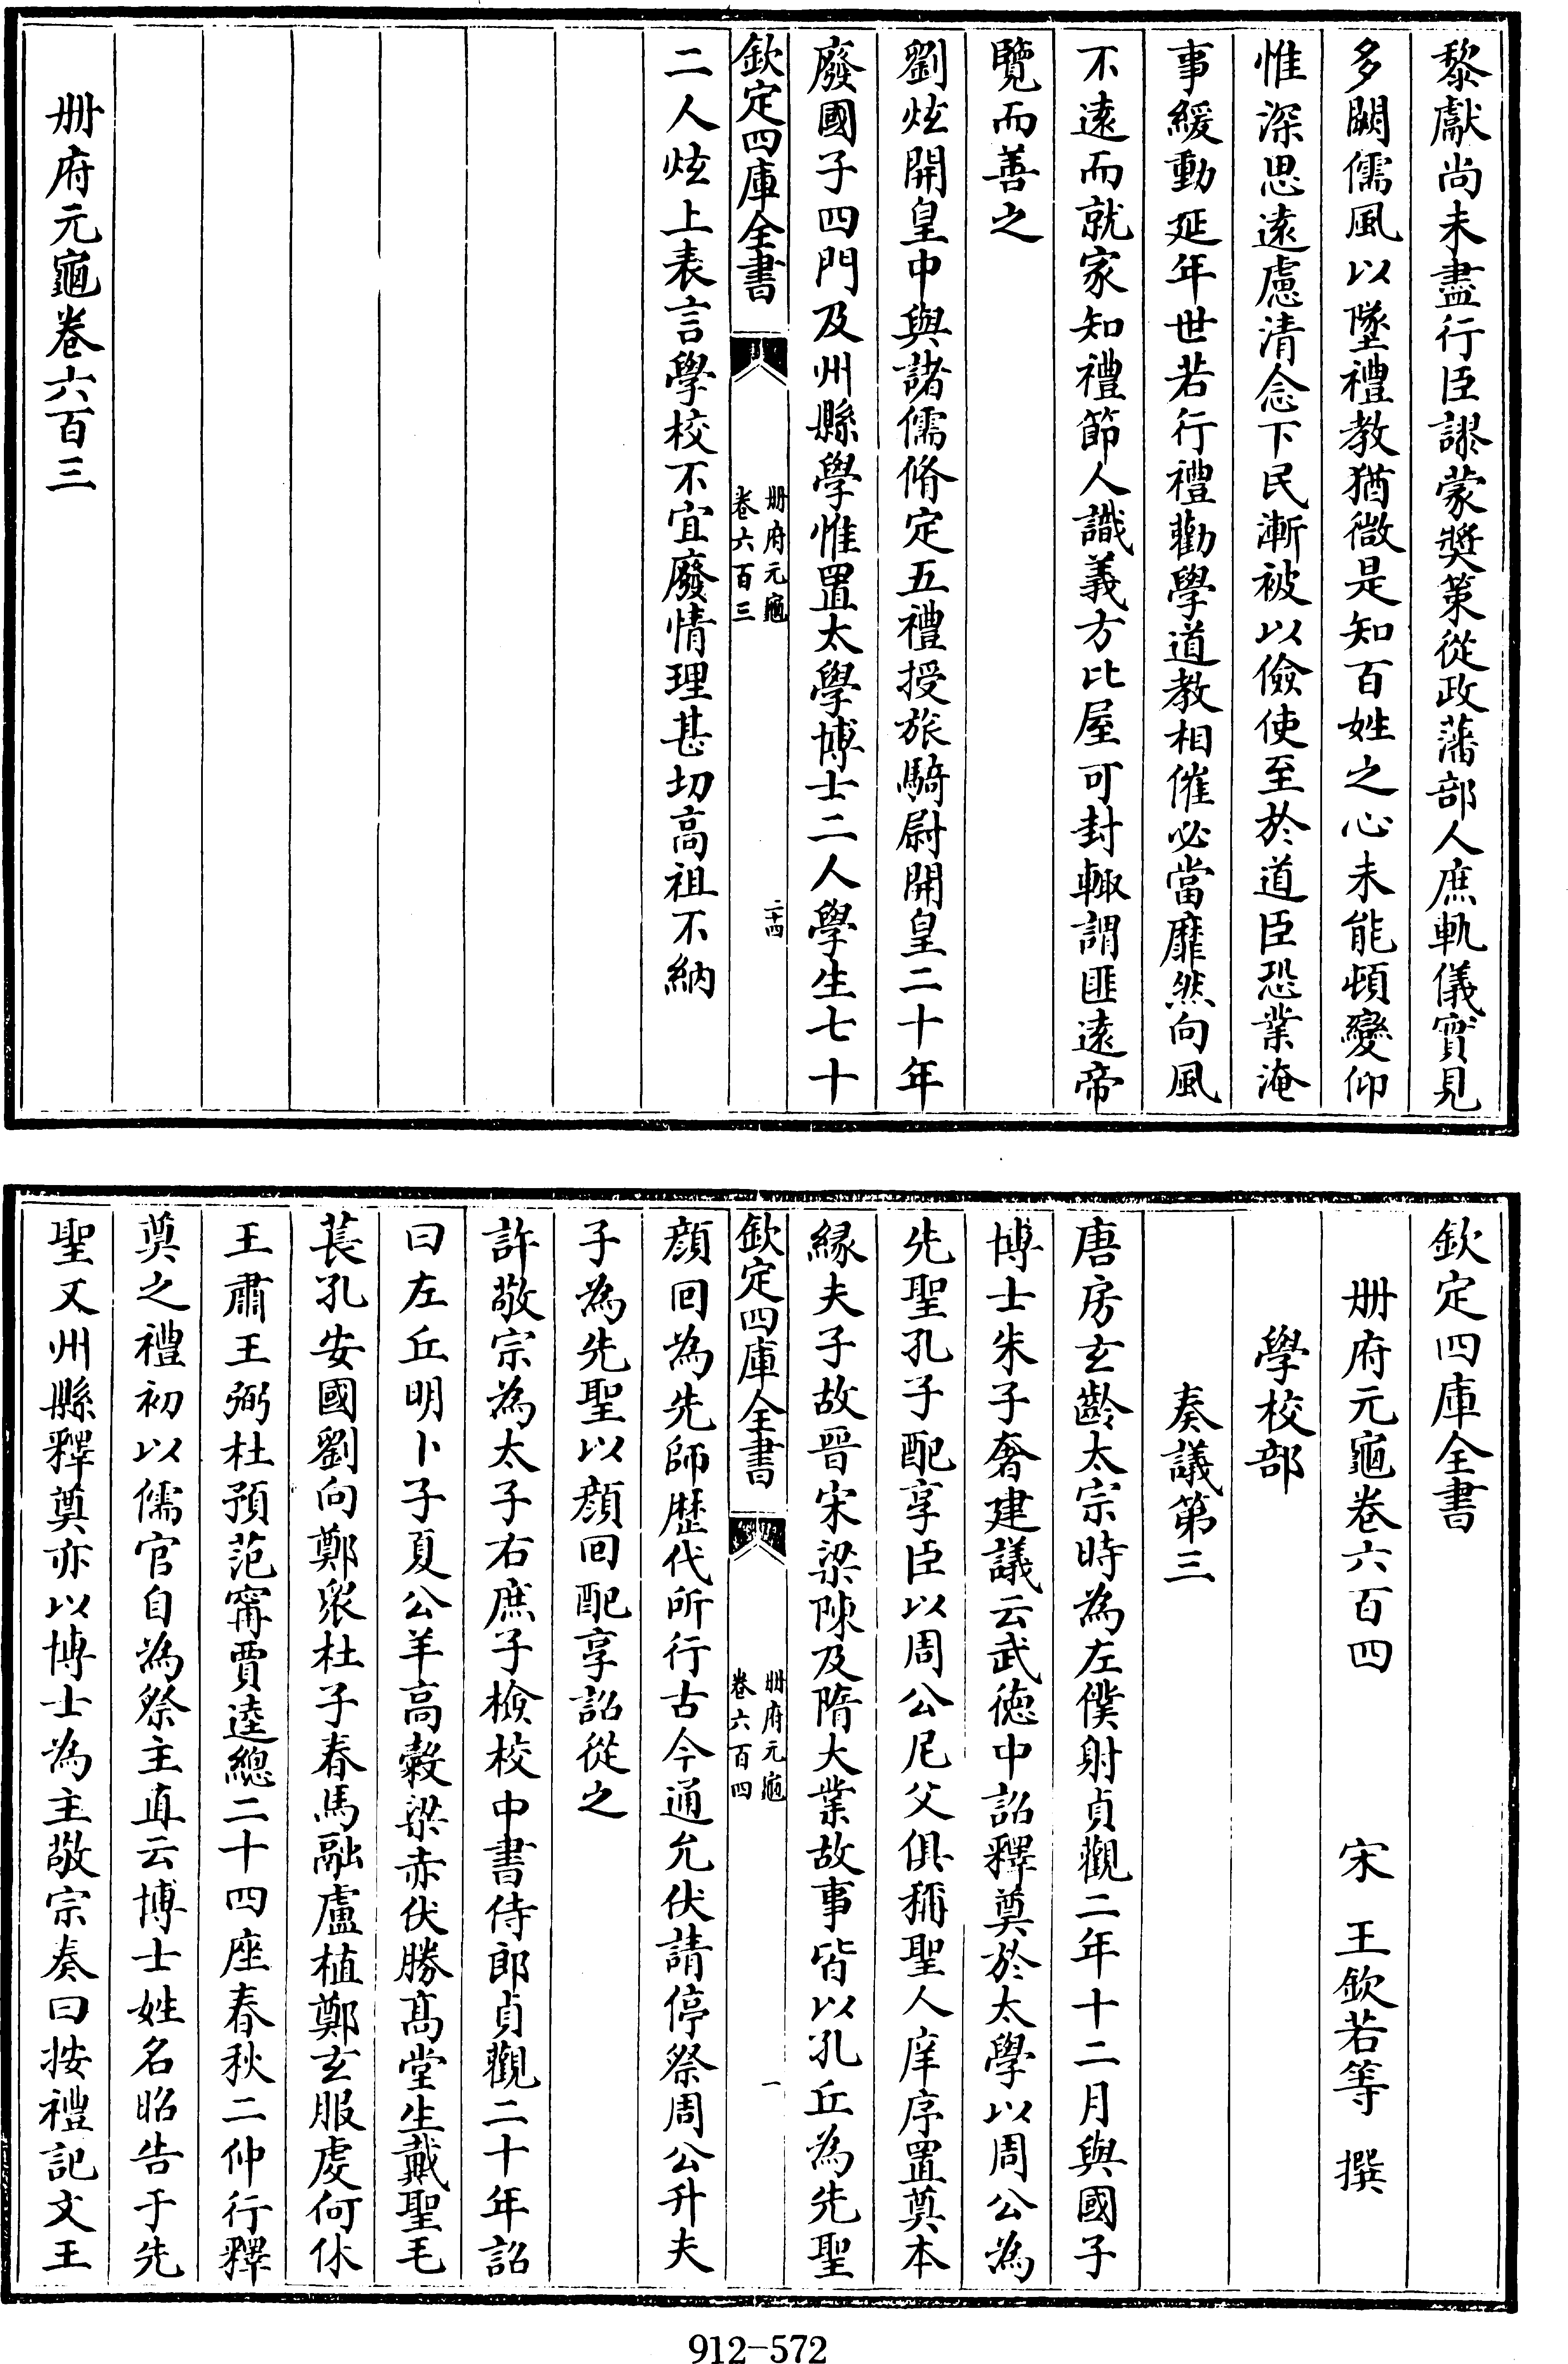 黎獻尚未盡行臣謬蒙奬策從政藩部人庶軌儀實見
多闕儒風以墜禮教猶微是知百姓之心未能頓變仰
惟深思遠慮清念下民漸被以儉使至於道臣恐業淹
事緩動延年世若行禮勸學道教相催必當靡然向風
不遠而就家知禮節人識義方比屋可封輙謂匪遠帝
覽而善之
劉炫開皇中與諸儒脩定五禮授旅騎尉開皇二十年
廢國子四門及州縣學惟置太學博士二人學生七十
欽定四庫全書
册府元龜
卷六百三
二十四
二人炫上表言學校不宜廢情理甚切高祖不納
册府元龜卷六百三
欽定四庫全書
册府元龜卷六百四
宋 王欽若等 撰
學校部
奏議第三
唐房玄齡太宗時為左僕射貞觀二年十二月與國子
博士朱子奢建議云武徳中詔釋奠於太學以周公為
先聖孔子配享臣以周公尼父俱稱聖人庠序置奠本
緣夫子故晉宋梁陳及隋大業故事皆以孔丘為先聖
欽定四庫全書
册府元龜
卷六百四
一
顔回為先師歷代所行古今通允伏請停祭周公升夫
子為先聖以顔回配享詔從之
許敬宗為太子右庶子檢校中書侍郎貞觀二十年詔
曰左丘明卜子夏公羊高榖梁赤伏勝髙堂生戴聖毛
萇孔安國劉向鄭衆杜子春馬融盧植鄭玄服虔何休
王肅王弼杜預范甯賈逵總二十四座春秋二仲行釋
奠之禮初以儒官自為祭主直云博士姓名昭告于先
聖又州縣釋奠亦以博士為主敬宗奏曰按禮記文王
912-572